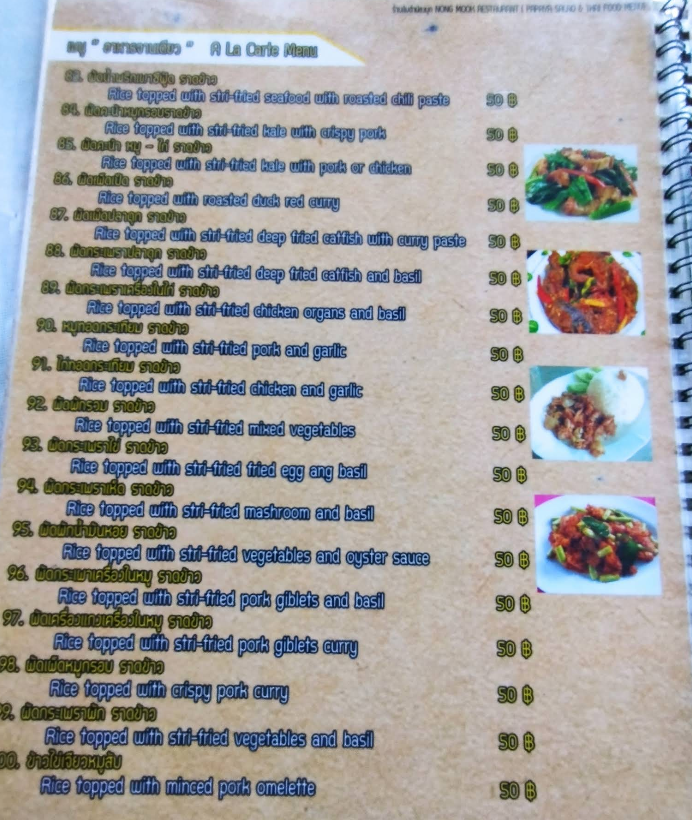 ร้านส้มตำน้องมุก NONG MOOK RESTAURANT | PAPAYA SALAD & THAI FOOD MENU
เมนู " อาหารจานเดียว " A La Carte Menu
83. ผัดน้ำพริกเผาซีฟู้ด ราดข้าว
Rice topped with stri-fried seafood with roasted chili paste 50 ฿
84. ผัดคะน้าหมูกรอบราดข้าว
Rice topped with stri-fried kale with crispy pork 50 ฿
85. ผัดคะน้า หมู - ไก่ ราดข้าว
Rice topped with stri-fried kale with pork or chicken 50 ฿
86. ผัดเผ็ดเป็ด ราดข้าว
Rice topped with roasted duck red curry 50 ฿
87. ผัดเผ็ดปลาดุก ราดข้าว
Rice topped with stri-fried deep fried catfish with curry paste 50 ฿
88. ผัดกระเพราปลาดุก ราดข้าว
Rice topped with stri-fried deep fried catfish and basil 50 ฿
89. ผัดกระเพราเครื่องในไก่ ราดข้าว
Rice topped with stri-fried chicken organs and basil 50 ฿
90. หมูทอดกระเทียม ราดข้าว
Rice topped with stri-fried pork and garlic 50 ฿
91. ไก่ทอดกระเทียม ราดข้าว
Rice topped with stri-fried chicken and garlic 50 ฿
92. ผัดผักรวม ราดข้าว
Rice topped with stri-fried mixed vegetables 50 ฿
93. ผัดกระเพราไข่ ราดข้าว
Rice topped with stri-fried fried egg ang basil 50 ฿
94. ผัดกระเพราเห็ด ราดข้าว
Rice topped with stri-fried mashroom and basil 50 ฿
95. ผัดผักน้ำมันหอย ราดข้าว
Rice topped with stri-fried vegetables and oyster sauce 50 ฿
96. ผัดกระเพาเครื่องในหมู ราดข้าว
Rice topped with stri-fried pork giblets and basil 50 ฿
97. ผัดเครื่องแกงเครื่องในหมู ราดข้าว
Rice topped with stri-fried pork giblets curry 50 ฿
98. ผัดเผ็ดหมูกรอบ ราดข้าว
Rice topped with crispy pork curry 50 ฿
9. ผัดกระเพราผัก ราดข้าว
Rice topped with stri-fried vegetables and basil 50 ฿
00. ข้าวไข่เจียวหมูสับ
Rice topped with minced pork omelette 50 ฿